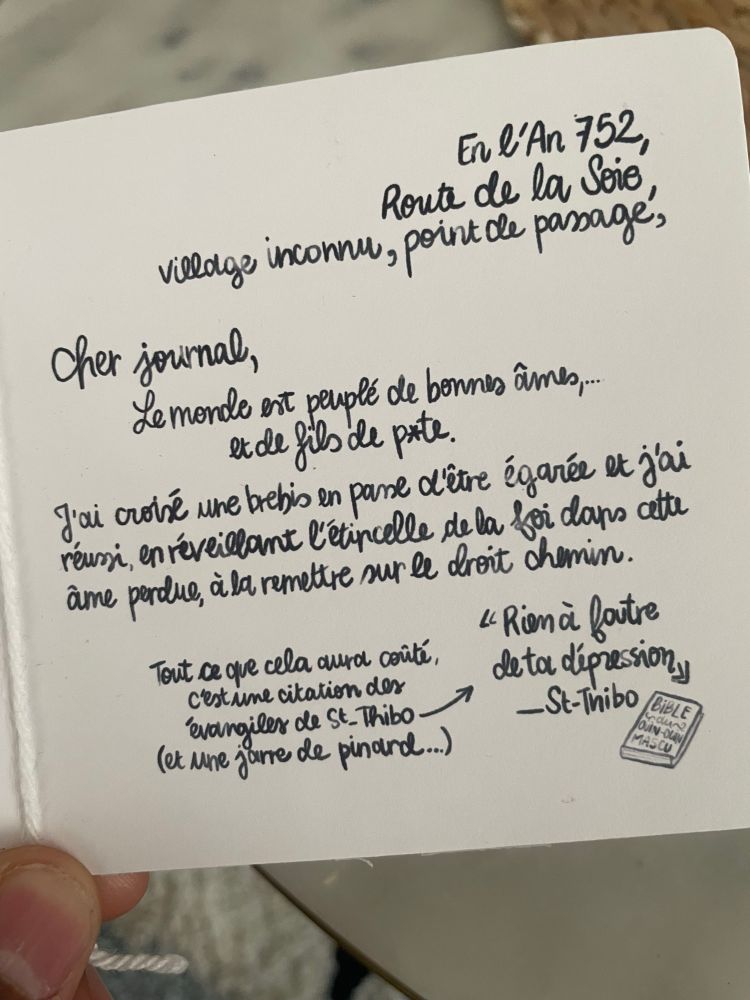 En l'An 752,
Route de la Soie,
village inconnu, point de passage,
Cher journal,
Le monde est peuplé de bonnes âmes,...
et de fils de p*te.
J'ai croisé une brebis en passe d'être égarée et j'ai
réussi, en réveillant l'étincelle de la foi dans cette
âme perdue, à la remettre sur le droit chemin.
Tout ce que cela aura coûté,
c'est une citation des
évangiles de St-Thibo
(et une jarre de pinard...)
"Rien à foutre
de ta dépression"
—St-Thibo
BiBLE
du
OUIN-OUIN
MASCU